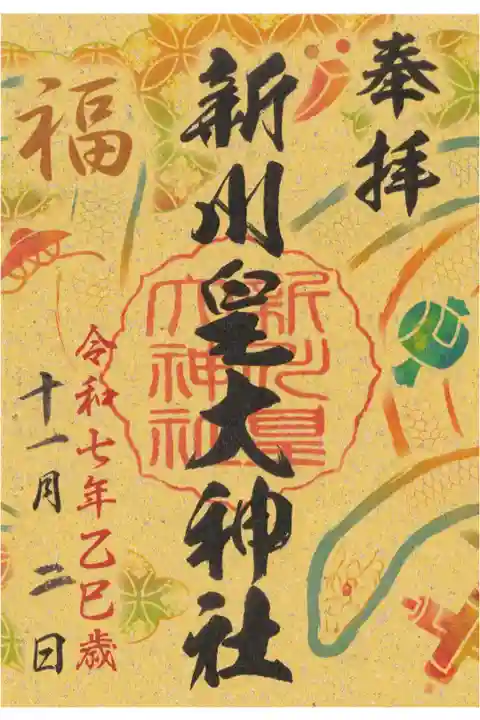 奉拝
新川皇大神社
新川皇
大神社
福
令和七年乙巳歳
十一月二日